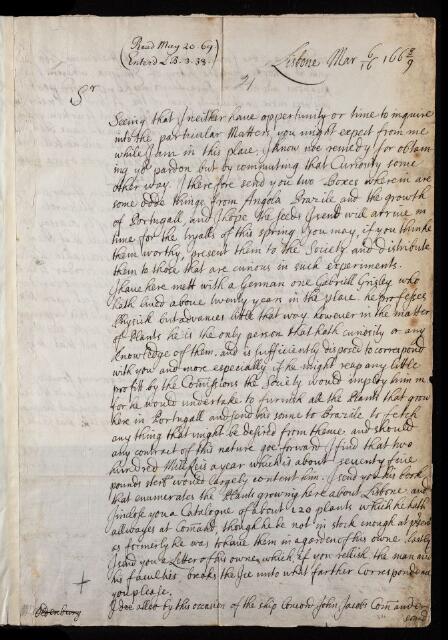 (Read May 20. 69)
(Enterd L B. 3. 38.)
Lisbone Mar 6/16 166 8/9
21
Sr
Seeing that I neither have oppertunity or time to inquire
into the particular Matters you might expect from me
while I am in this place, I know noe remedy for obtain
ing yor pardon but by commuting that Curiosity some
other way. I therefore send you two Boxes wherein are
some odde things from Angola Brazile and the growth
of Portugall, and I hope the seeds I send will arrive in
time for the tryalls of this spring. you may, if you thinke
them worthy, present them to the Society and distribute
them to those that are curious in such experiments.
I have here mett with a German one Gabriell Grisley who
hath lived above twenty years in the place. he professes
Physick but advances little that way however in the matter
of Plants he is the only person that hath curiosity or any
knowledge of them, and is sufficiently disposed to correspond
with you and more especially if he might reap any little
profitt by the Comissions the Society would imploy him in
for he would undertake to furnish all the Plants that grow
here in Portugall and send his sonne to Brazile to fetch
any thing that might be desired from thence and should
any contract of this nature goe forward I find that two
hundred Millreis a year which is about seventy five
pounds sterl would largely content him. I send you his book
that enumerates the Plants growing here about Lisbone and
I inclose you a Catalogue of about 220 plants which he hath
allwayes at Comand, though he be not in stock enough at present
as formerly he was to have them in a garden of his owne. lastly
I send you a Letter of his owne, which, if you rellish the man and
his faculties, breaks the Ice unto what farther Correspondence
you please.
+
Oldenburg
I doe allso by this occasion of the ship Concord John Jacobs Comander